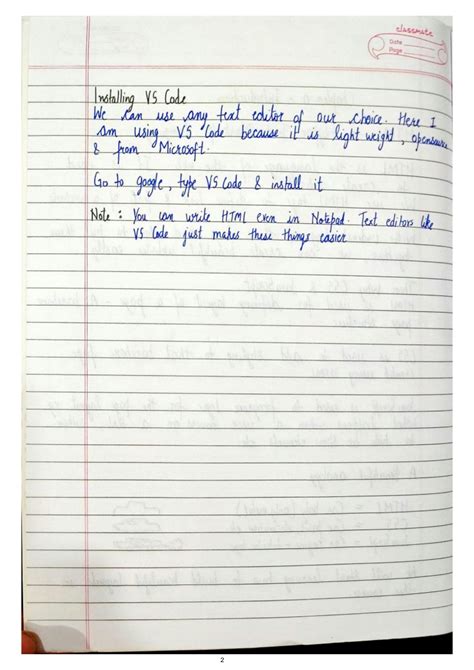 classmate
Date
Page
Installing VS Code
We can use any text editor of our choice. Here I
am using VS Code because it is light weight, opensource
& from Microsoft.
Go to google, type VS Code & install it
Note : You can write HTML even in Notepad. Text editors like
VS Code just makes these things easier
2